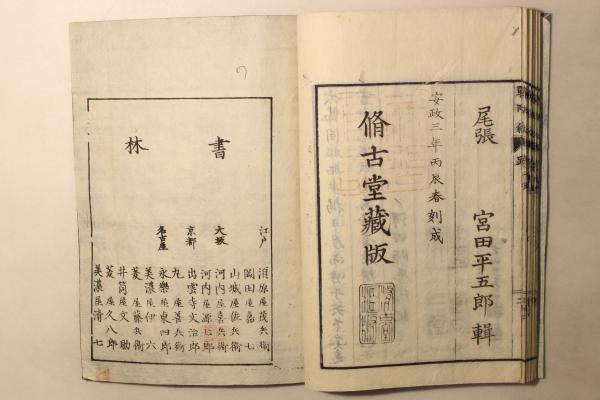 尾張 宮田平五郎輯
安政三年丙辰春刻成
脩古堂藏版
書林
江戸 須原屋茂兵衛
岡田屋嘉七
山城屋佐兵衛
大坂 河内屋喜兵衛
河内屋源七郎
京都 出雲寺文治郎
丸屋善兵衛
名古屋 永樂屋東四郎
美濃屋伊六
菱屋藤兵衛
井筒屋文助
菱屋久八郎
美濃屋清七